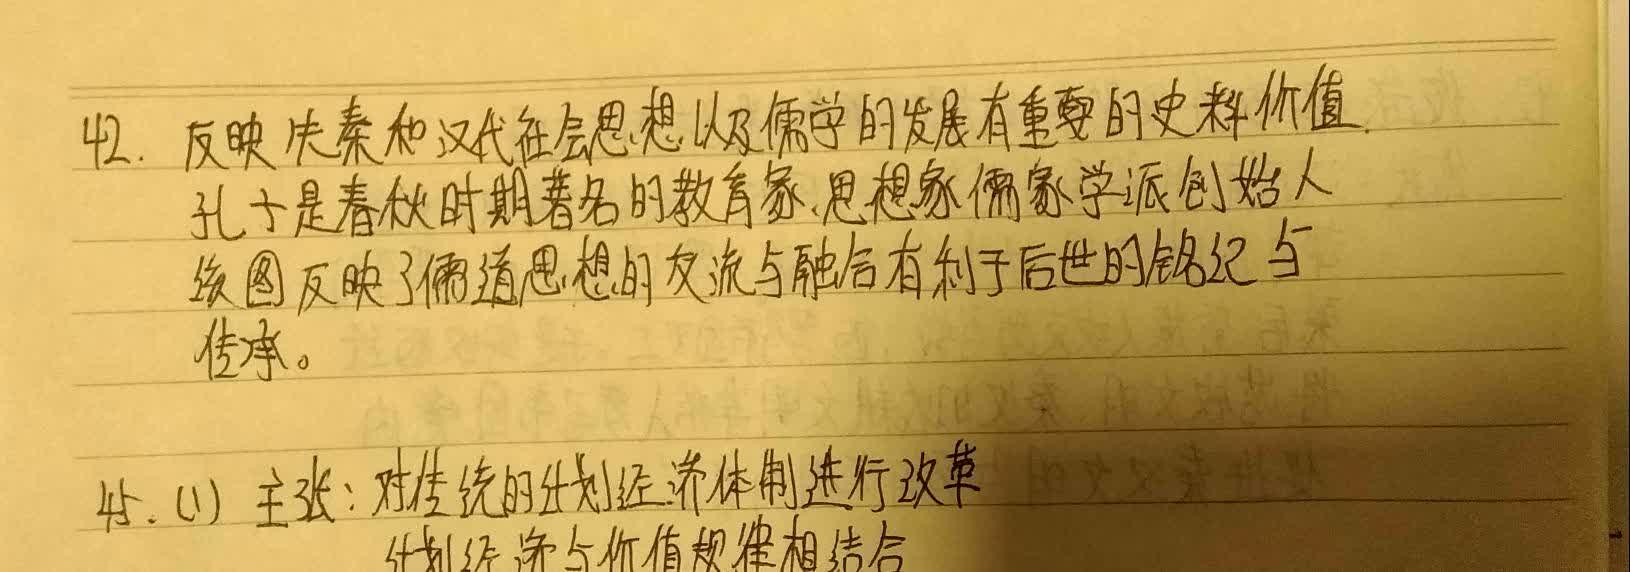 42. 反映先秦和汉代社会思想以及儒学的发展有重要的史料价值.
孔子是春秋时期著名的教育家、思想家儒家学派创始人
该图反映了儒道思想的交流与融合有利于后世的铭纪与
传承。
45. (1) 主张: 对传统的计划经济体制进行改革
计划经济与价值规律相结合